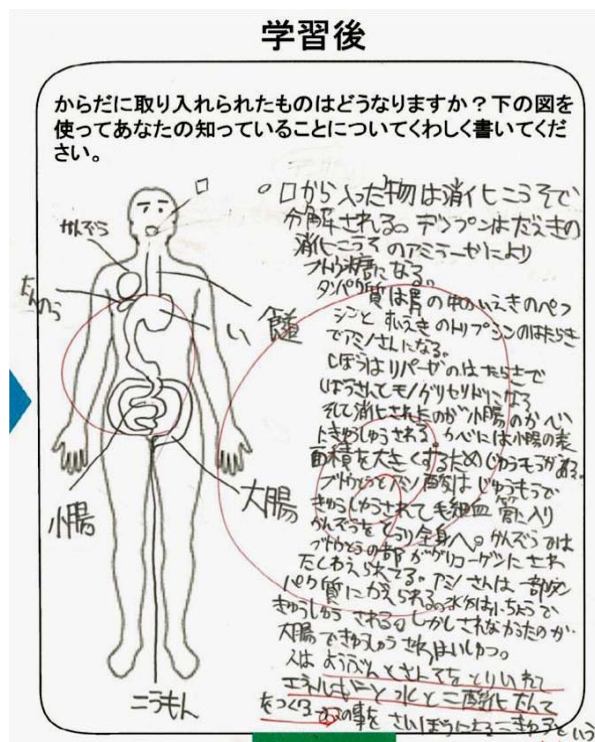 学習後
からだに取り入れられたものはどうなりますか？下の図を
使ってあなたの知っていることについてくわしく書いてくだ
さい。
口
かんぞう
たんのう
い
食道
小腸
大腸
こうもん
○口から入った物は消化こうそで
分解される。デンプンはだえきの
消化こうそのアミラーゼにより
ブドウ糖になる。
タンパク質は胃の中のいえきのペプ
シンと すいえきのトリプシンのはたらき
でアミノさんになる。
しぼうはリパーゼのはたらきで
しぼうさんてモノグリセリドになる
そして消化されたのが小腸のかべ
にきゅうしゅうされる。かべには小腸の表
面積を大きくするためじゅうもうがある。
ブドウとうとアミノ酸はじゅうもうで
きゅうしゅうされて毛細血管に入り
かんぞうをとうり全身へ。かんぞうでは
ブドウとうの一部がグリコーゲンにされ
たくわえられてる。アミノさんは一部タン
パク質にかえられる。水分はしょうちょうで
きゅうしゅうされる。しかしされなかったのが
大腸できゅうしゅうされはいしゅつ。
人はようぶんとさんそをとりいれて
エネルギーと水と二酸化たんそ
をつくる
の事をさいぼうによるこきゅうという